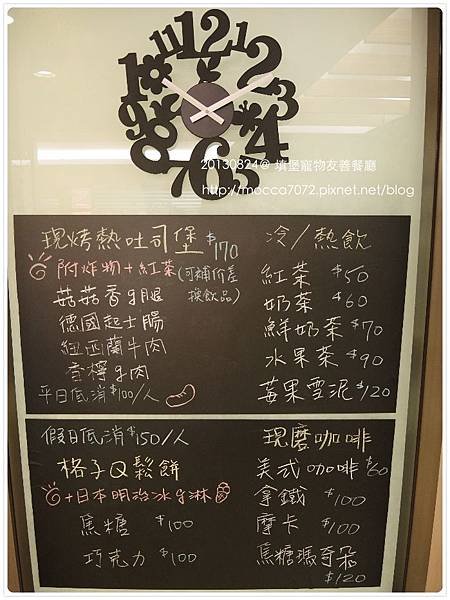 11 12 1
10 2
9 3
8 4
7 6 5
20130824@ 填堡寵物友善餐廳
http://mocca7072.pixnet.net/blog
現烤熱吐司堡 $170
附炸物+紅茶(可補价差換飲品)
菇菇香ㄐ腿
德國起士腸
紐西蘭牛肉
香檸ㄐ肉
平日低消$100/人
冷/熱飲
紅茶 $50
奶茶 $60
鮮奶茶 $70
水果茶 $90
莓果雪泥 $120
假日低消$150/人
格子Q鬆餅
+日本明治冰ㄑ淋
焦糖 $100
巧克力 $100
現磨咖啡
美式咖啡 $60
拿鐵 $100
摩卡 $100
焦糖瑪奇朵
$120